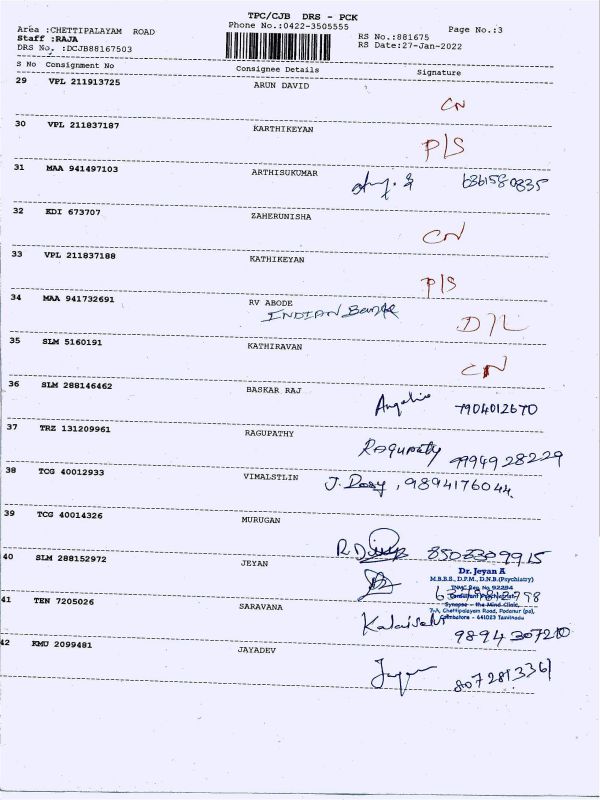 TPC/CJB DRS - PCK
Area :CHETTIPALAYAM ROAD Phone No.:0422-3505555 Page No.:3
Staff :RAJA RS No.:881675
DRS No. :DCJB88167503 RS Date:27-Jan-2022
S No Consignment No Consignee Details Signature
29 VPL 211913725 ARUN DAVID
CN
30 VPL 211837187 KARTHIKEYAN
P/S
31 MAA 941497103 ARTHISUKUMAR
6361580835
32 KDI 673707 ZAHERUNISHA
CN
33 VPL 211837188 KATHIKEYAN
P/S
34 MAA 941732691 RV ABODE
INDIAN Bank
D/L
35 SLM 5160191 KATHIRAVAN
CN
36 SLM 288146462 BASKAR RAJ
7904012670
37 TRZ 131209961 RAGUPATHY
Ragupathy 9994928229
38 TCG 40012933 VIMALSTLIN
J. Dasy, 9894176044.
39 TCG 40014326 MURUGAN
8508309915
40 SLM 288152972 JEYAN
Dr. Jeyan A
M.B.B.S., D.P.M., D.N.B.(Psychiatry)
TNMC Reg No 92294
Consultant Psychiatrist
Synapse - the Mind Clinic,
7-A, Chettipalayam Road, Podanur (po),
Coimbatore - 641023 Tamilnadu
41 TEN 7205026 SARAVANA
9894307210
42 KMU 2099481 JAYADEV
8072813361